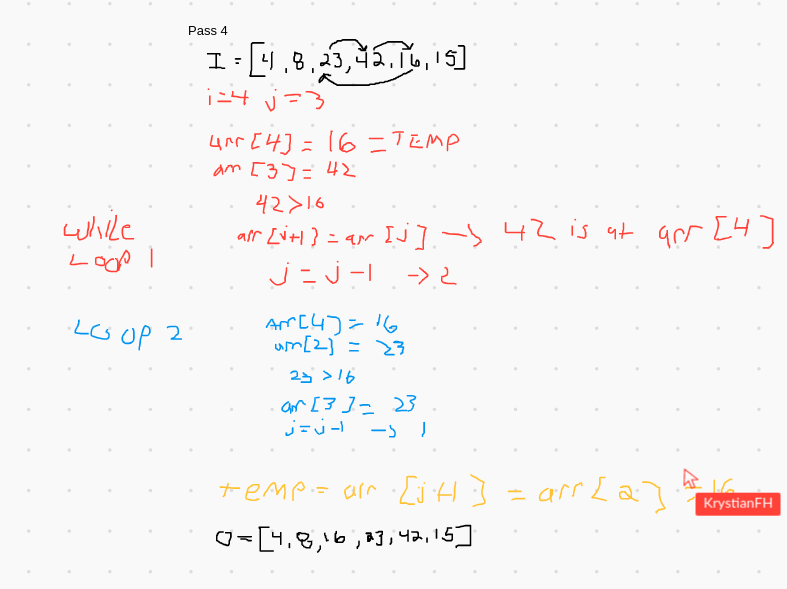 Pass 4
I = [4, 8, 23, 42, 16, 15]
i=4 j=3
arr [4] = 16 = TEMP
arr [3] = 42
42 > 16
while
Loop 1
arr [j+1] = arr [j] → 42 is at arr [4]
j = j-1 → 2
Loop 2
Arr[4] = 16
arr[2] = 23
23 > 16
arr [3] = 23
j=j-1 → 1
temp = arr [j+1] = arr [2] = 16
KrystianFH
O = [4, 8, 16, 23, 42, 15]